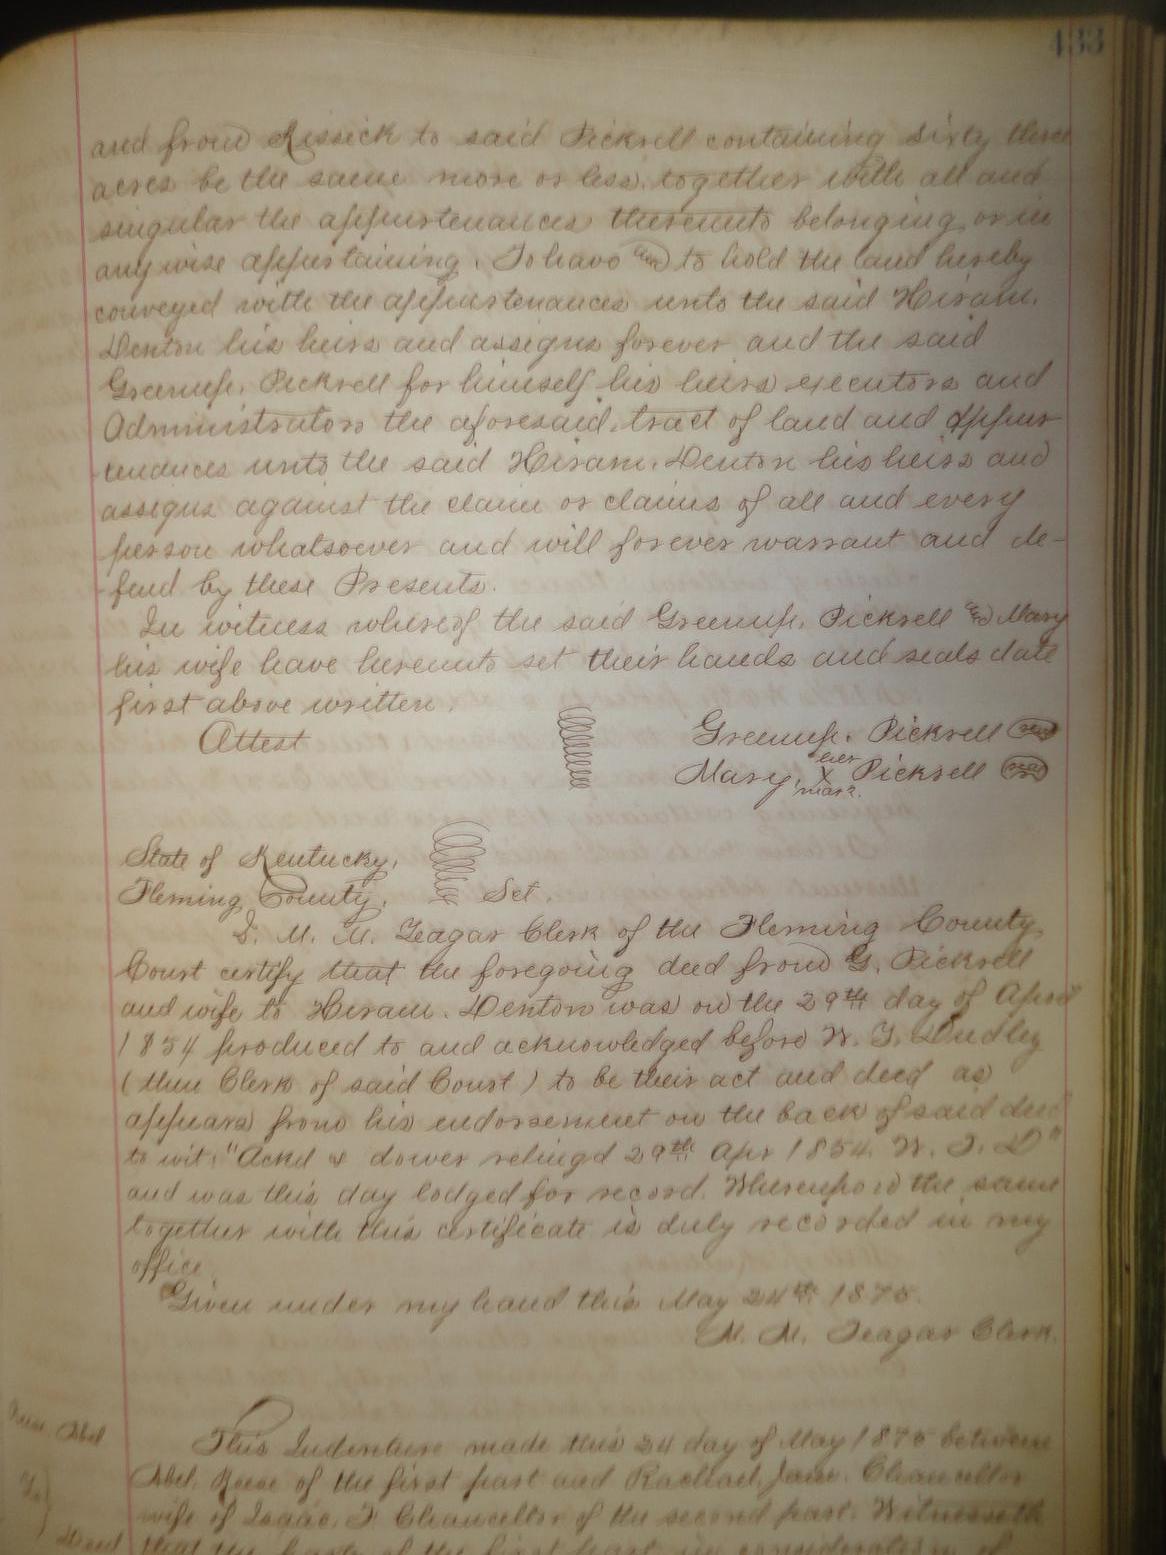 433
and from Kissick to said Pickrell containing sixty three
acres be the same more or less. together with all and
singular the appurtenances thereunto belonging, or in
any wise appertaining. To have and to hold the land hereby
conveyed with the appurtenances unto the said Hiram.
Denton his heirs and assigns forever and the said
Greenup. Pickrell for himself his heirs executors and
Administrators the aforesaid tract of land and appur
tenances unto the said Hiram. Denton his heirs and
assigns against the claim or claims of all and every
person whatsoever and will forever warrant and de-
fend by these Presents.
In witness whereof the said Greenup. Pickrell and Mary
his wife have hereunto set their hands and seals date
first above written.
Attest
Greenup. Pickrell seal
her
Mary. X Pickrell seal
mark.
State of Kentucky,
Fleming County. Sct.
I. M. M. Teagar Clerk of the Fleming County
Court certify that the foregoing deed from G. Pickrell
and wife to Hiram. Denton was on the 29th day of April
1854 produced to and acknowledged before W. T. Dudley
(then Clerk of said Court) to be their act and deed as
appears from his endorsement on the back of said deed
to wit: "Ackd & dower relinqd 29th Apr 1854. W. T. D"
and was this day lodged for record. Whereupon the same
together with this certificate is duly recorded in my
office.
Given under my hand this May 24th 1875.
M. M. Teagar Clerk.
Abel
This Indenture made this 24 day of May 1875 between
Abel. Reese of the first part and Rachael, Jane. Chancellor
wife of Isaac. F. Chancellor of the second part. Witnesseth
To
Deed
that the party of the first part in consideration of